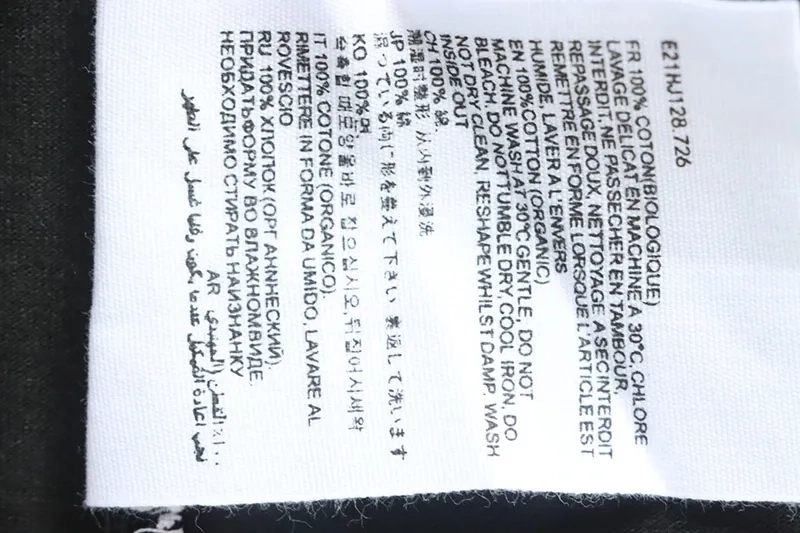 E21HJ128.726
FR 100% COTON(BIOLOGIQUE)
LAVAGE DELICAT EN MACHINE A 30°C, CHLORE
INTERDIT, NE PAS SECHER EN TAMBOUR,
REPASSAGE DOUX, NETTOYAGE A SEC INTERDIT
REMETTRE EN FORME LORSQUE L'ARTICLE EST
HUMIDE, LAVER A L'ENVERS
EN 100%COTTON (ORGANIC)
MACHINE WASH AT 30°C GENTLE, DO NOT
BLEACH, DO NOT TUMBLE DRY, COOL IRON, DO
NOT DRY CLEAN, RESHAPE WHILST DAMP. WASH
INSIDE OUT
CH 100% 綿.
潮湿时整形 从内到外浸洗
JP 100% 綿
湿っている内に形を整えて下さい 裏返して洗います
KO 100% 면
수축할 때 모양을 바로 잡으십시오, 뒤집어서 세탁
IT 100% COTONE (ORGANICO).
RIMETTERE IN FORMA DA UMIDO, LAVARE AL
ROVESCIO
RU 100% ХЛОПОК (ОРГАННЧЕСКИЙ).
ПРИДАТЬ ФОРМУ ВО ВЛАЖНОМ ВИДЕ.
НЕОБХОДИМО СТИРАТЬ НАИЗНАНКУ
AR
١٠٠٪ القطن